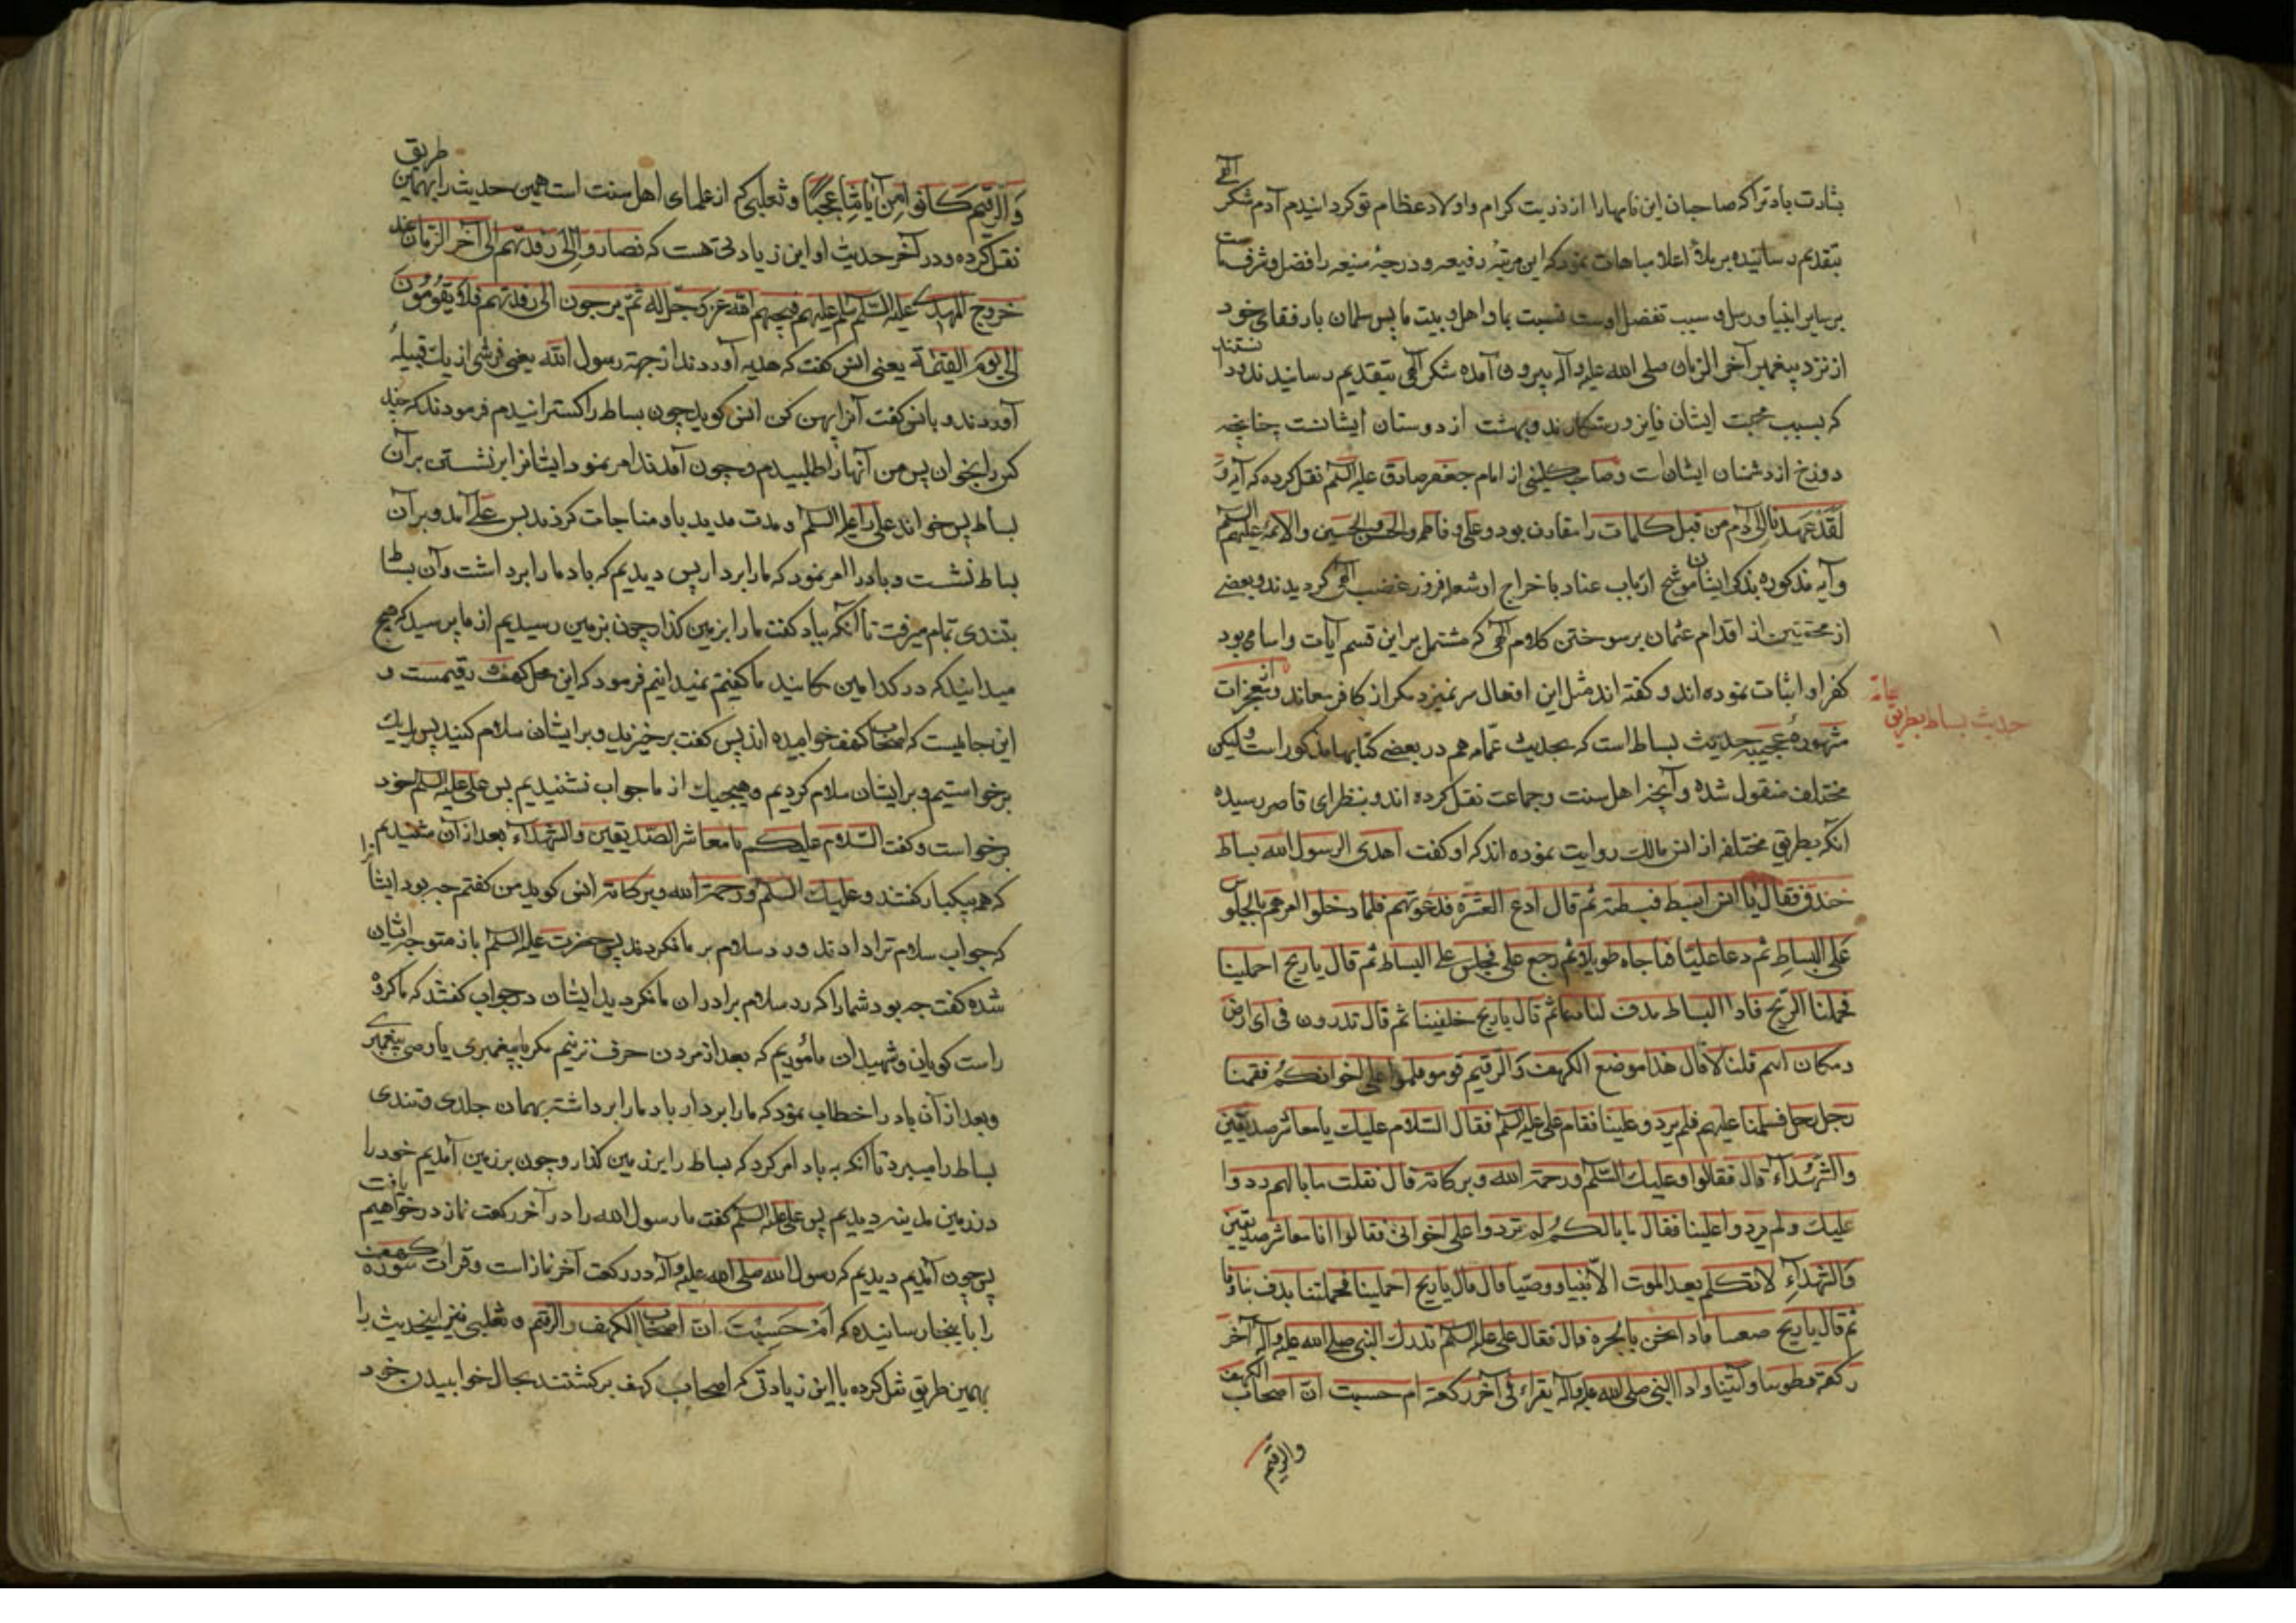 بشارت باد ترا که صاحبان این نامها را از ذریت کرام و اولاد عظام تو کردانیدم آدم شکر الهی
بتقدیم رسانیده بر ملأ اعلا مباهات نمود که این مرتبهٔ رفیعه و درجهٔ منیعه را فضل و شرفست
بر سایر انبیا و رسل و سبب تفضل اوست نسبت بما و اهل بیت ما پس سلمان با رفقای خود
از نزد پیغمبر آخر الزمان صلی الله علیه وآله بیرون آمده شکر الهی بتقدیم رسانیدند و دانستند
که بسبب محبت ایشان فایز و رستکارند و بهشت از دوستان ایشانست چنانچه
دوزخ از دشمنان ایشان است و صاحب کلینی از امام جعفر صادق علیه السلم نقل کرده که آیه و
لَقَدْ عَهِدْنا اِلی آدَم من قبل کلمات را مقارن بود و علی و فاطمه والحسن والحسین والائمه علیهم السلم
وآیه مذکوره بذکر ایشان موشح ارباب عناد باخراج او شعله افروز غضب الهی کردیدند و بعضی
از محققین از اقدام عثمان بر سوختن کلام الهی که مشتمل بر این قسم آیات و اسامی بود
کفر او اثبات نموده اند و کفته اند مثل این افعال سر نمیزند مکر از کافر معاند و از معجزات
حدیث بساط بطریق عامه
مشهورهٔ عجیبه حدیث بساط است که بحدیث غمامه هم در بعضی کتابها مذکور است ولیکن
مختلف منقول شده وآنچه اهل سنت و جماعت نقل کرده اند و بنظر این قاصر رسیده
آنکه بطریق مختلفه از انس مالک روایت نموده اند که او کفت اهدی الرسول الله بساط
خندف فقال یا انس ابسط فبسطته ثم قال ادع العشره فدعوتهم فلما دخلوا امرهم بالجلوس
علی البساط ثم دعا علیا فناجاه طویلا ثم رجع علی فجلس علی البساط ثم قال یا ریح احملینا
فحملنا الریح فاذا البساط یدف لنا دفا ثم قال یا ریح خلفینا ثم قال تدرون فی ای ارض
ومکان انتم قلنا لا قال هذا موضع الکهف والرقیم قوموا فسلموا علی اخوانکم فقمنا
رجل رجل فسلمنا علیهم فلم یردو علینا فقام علی علیه السلم فقال السلام علیک یا معاشر صدیقین
والشهداء قال فقالوا و علیک السّلم و رحمة الله و برکاته قال فقلت ما بالهم ردوا
علیک ولم یردوا علینا فقال ما بالکم لم تردوا علی اخوانی فقالوا انا معاشر صدیقین
والشهداءِ لا نتکلم بعد الموت الا نبیا و وصیّا قال قال یا ریح احملینا فحملتنا یدف بنا دفا
ثم قال یا ریح ضعینا فاذا نحن بالحره قال فقال علی علیه السلم ندرک النبی صلی الله علیه وآله آخر
رکعة وآتینا واذا النبی صلی الله علیه وآله یقراء فی آخر رکعة ام حسبت ان اصحاب الکهف
والرقیم
وَالرَّقیم کانُوا مِن آیاتِنا عَجَبًا و ثعلبی که از علمای اهل سنت است همین حدیث را بهمین طریق
نقل کرده و در آخر حدیث او این زیادتی هست که فصاروا الی رقدتهم الی آخر الزمان عند
خروج المهدی علیه السّلم یسلم علیهم فیحییهم الله عز و جل له ثم یرجعون الی رقدتهم فلا یقومون
الی یوم القیمة یعنی انس کفت که هدیه آوردند از جهة رسول الله یعنی فرشی از یک قبیله
آوردند و بانس کفت آنرا پهن کن انس کوید چون بساط را کسترانیدم فرمودند که چند
کس را بخوان پس من آنها را طلبیدم و چون آمدند امر نمود ایشانرا بر نشستن بر آن
بساط پس خواند علی را علیه السلم و مدت مدید با و مناجات کردند پس علی آمد و بر آن
بساط نشست و باد را امر نمود که ما را بردار پس دیدیم که باد ما را برداشت و آن بساط
بتندی تمام میرفت تا آنکه بباد کفت ما را بزمین کذار چون بزمین رسیدیم از ما پرسید که هیچ
میدانید که در کدامین مکانید ما کفتیم نمیدانیم فرمود که این محل کهف رقیمست و
این جائیست که اصحاب کهف خوابیده اند پس کفت برخیزید و بر ایشان سلام کنید پس یک یک
برخواستیم و بر ایشان سلام کردیم و هیچیک از ما جواب نشنیدیم پس علی علیه السلم خود
برخواست و کفت السّلام علیکم یا معاشر الصدیقین والشهداء بعد از آن شنیدیم
که همه بیکبار کفتند و علیک السلم و رحمة الله و برکاته انس کوید من کفتم چه بود ایشانرا
که جواب سلام ترا دادند و رد سلام بر ما نکردند پس حضرت علیه السلم باز متوجه ایشان
شده کفت چه بود شما را که رد سلام برادران ما نکردید ایشان در جواب کفتند که ما کروه
راست کویان و شهیدان مأموریم که بعد از مردن حرف نزنیم مکر با پیغمبری یا وصی پیغمبری
و بعد از آن باد را خطاب نمود که ما را بردار باد ما را برداشته بهمان جلدی و تندی
بساط را میبرد تا آنکه به باد امر کرد که بساط را بر زمین کذار و چون بر زمین آمدیم خود را
در زمین مدینه دیدیم پس علی علیه السلم کفت ما رسول الله را در آخر رکعت نماز در خواهیم یافت
پس چون آمدیم دیدیم که رسول الله صلی الله علیه وآله در رکعت آخر نماز است و قرات سوره کهف
را باینجا رسانیده که اَمْ حَسِبْتَ ان اصحاب الکهف والرقیم و ثعلبی نیز اینحدیث را
بهمین طریق نقل کرده با این زیادتی که اصحاب کهف برکشتند بحال خوابیدن خود